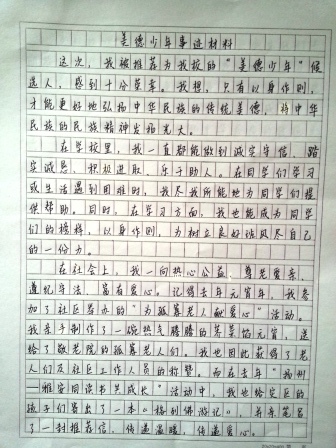 美德少年事迹材料
这次，我被推荐为我校的"美德少年"候
选人，感到十分荣幸。我想，只有以身作则，
才能更好地弘扬中华民族的传统美德，将中华
民族的民族精神发扬光大。
在学校里，我一直都能做到诚实守信，踏
实诚恳，积极进取，乐于助人。在同学们学习
或生活遇到困难时，我尽我所能地为同学们提
供帮助。同时，在学习方面，我也能成为同学
们的榜样，以身作则，为树立良好班风尽自己
的一份力。
在社会上，我一向热心公益，尊老爱亲，
遵纪守法，富有爱心。记得去年元宵节，我参
加了社区举办的"为孤寡老人献爱心"活动。
我亲手制作了一碗热气腾腾的荠菜馅元宵，送
给了敬老院的孤寡老人们。我也因此获得了老
人们及社区工作人员的称赞。而在去年"扬州
—雅安同读书共成长"活动中，我也给灾区的
孩子们寄出了一本《格列佛游记》，并亲笔写
了一封推荐信，传递温暖，传递爱心。